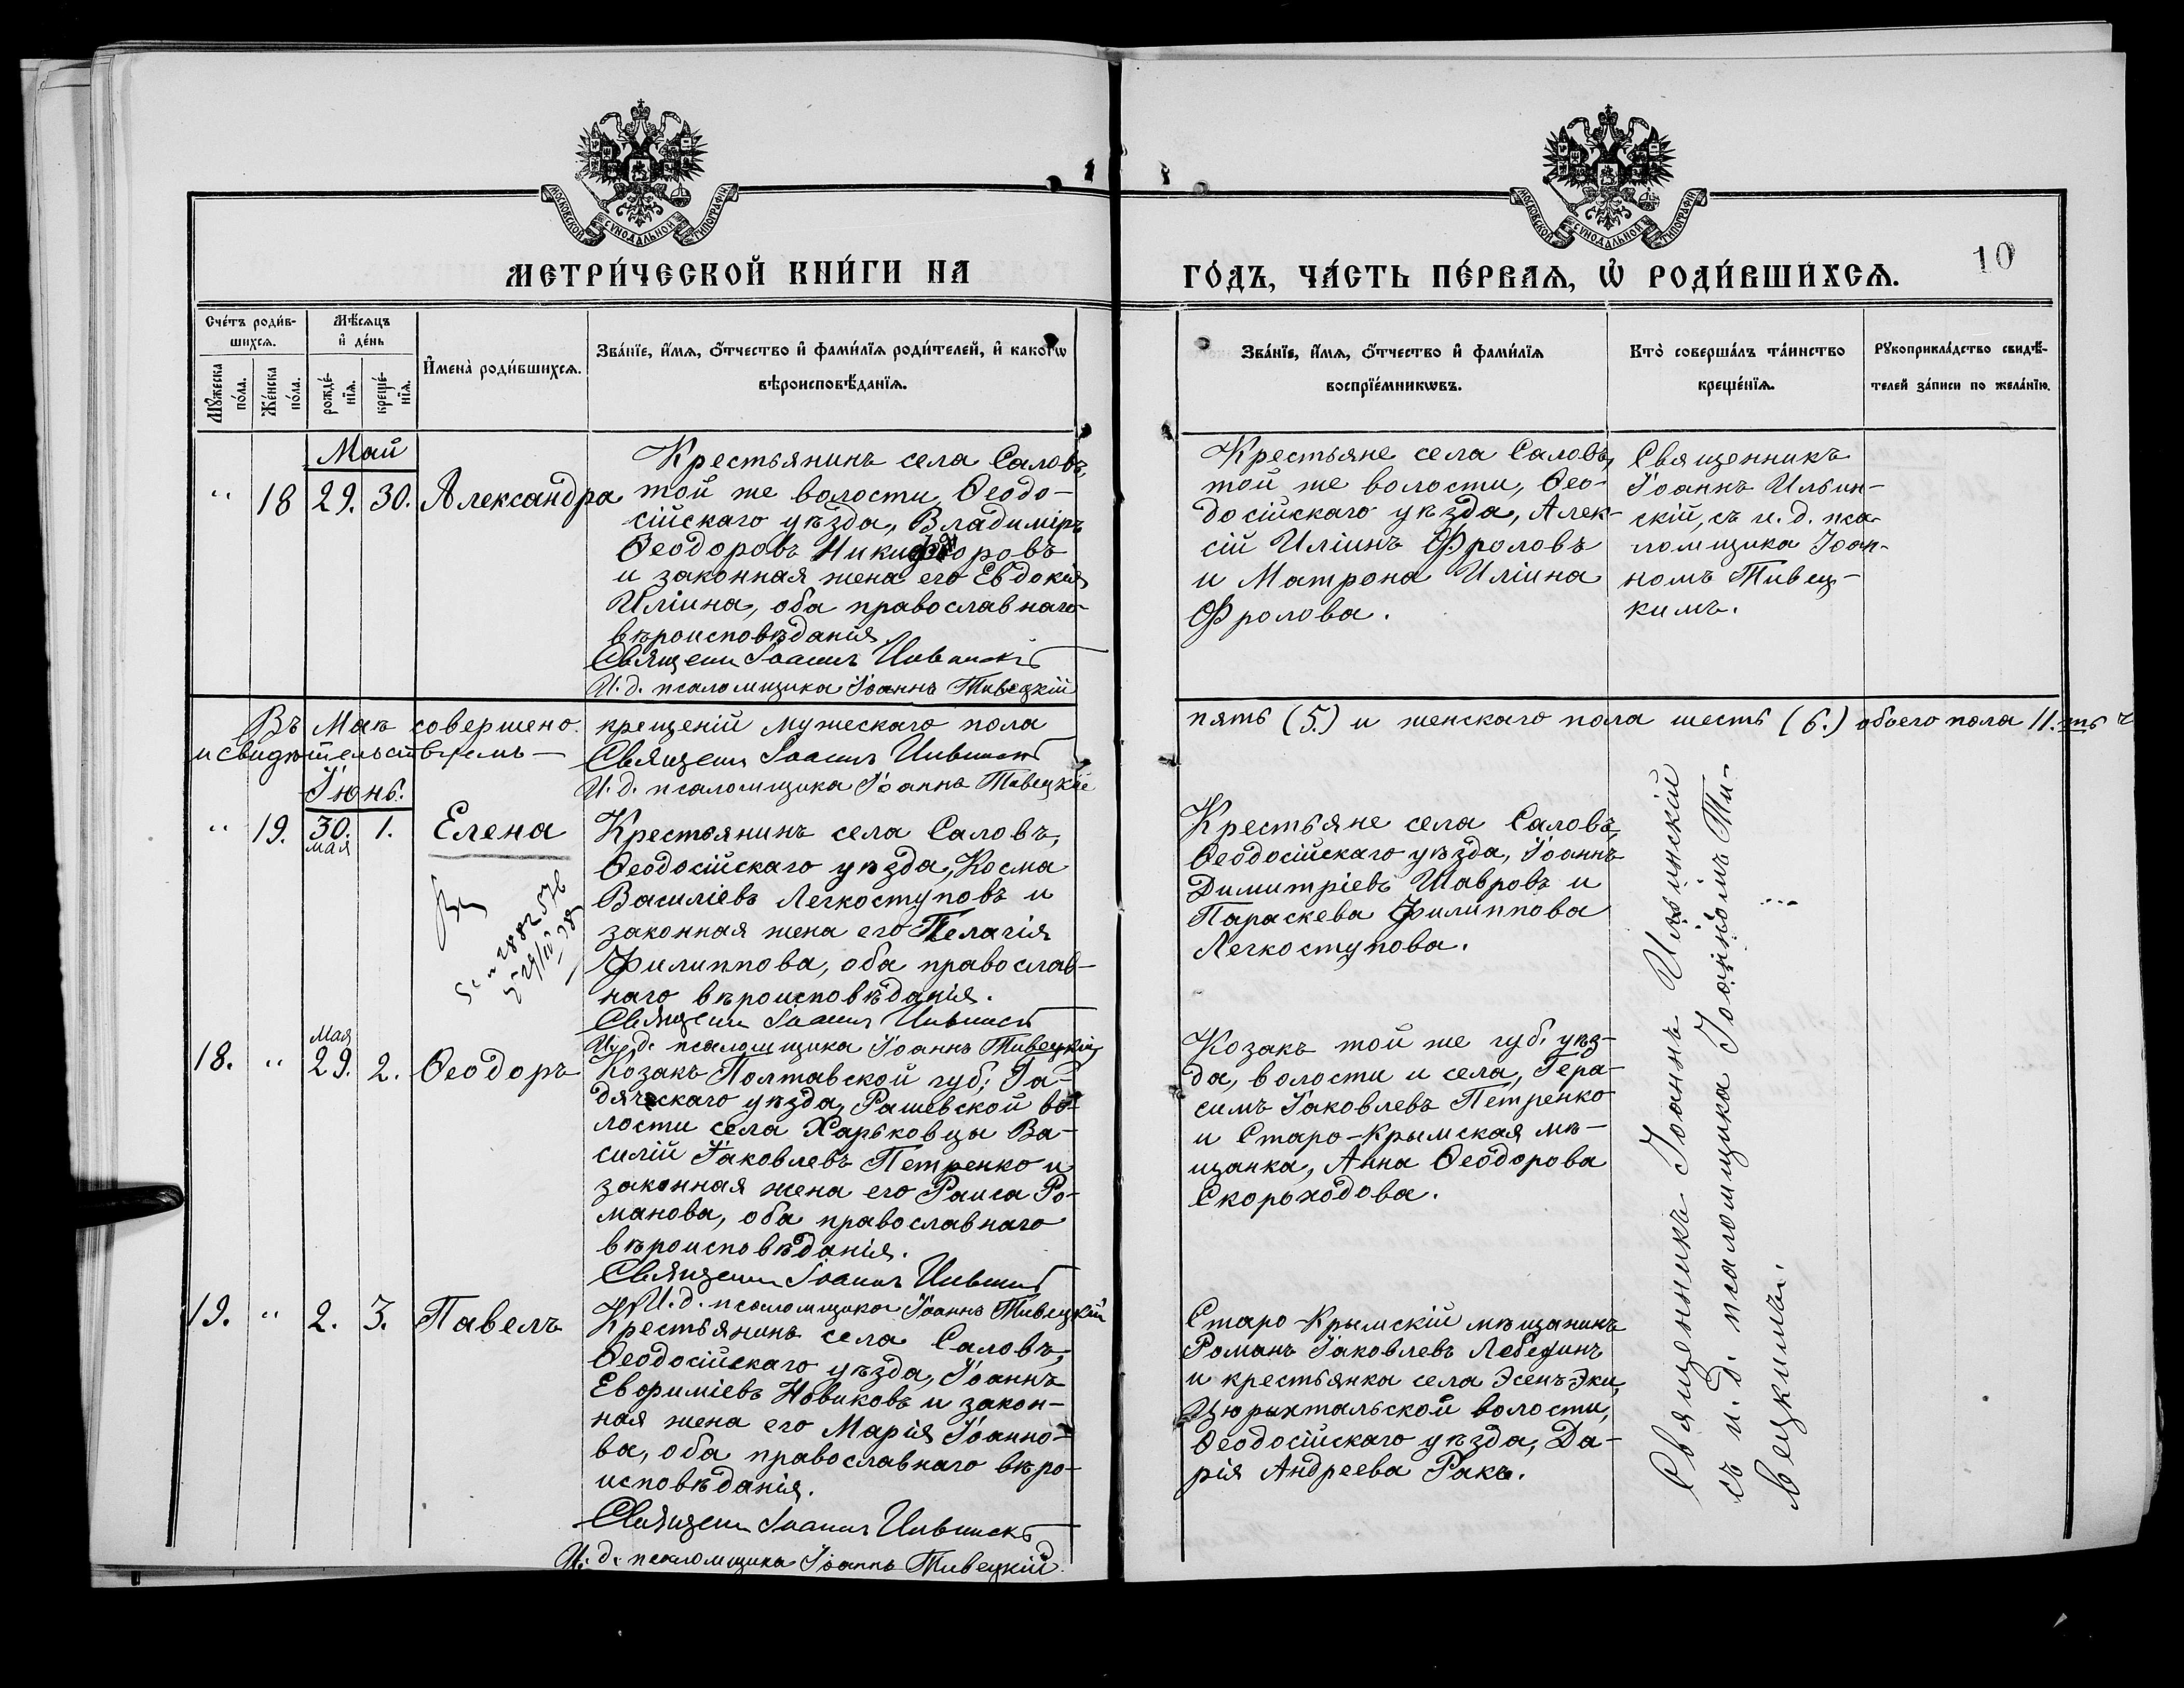 МОСКОВСКОЙ СѴНОДАЛЬНОЙ ТИПОГРАФІИ
МОСКОВСКОЙ СѴНОДАЛЬНОЙ ТИПОГРАФІИ
МЕТРИ́ЧЕСКОЙ КНИ́ГИ НА
ГО́ДЪ, ЧА́СТЬ ПЕ́РВАѦ, Ѡ҆ РОДИ́ВШИХСѦ.
10
Сче́тъ роди́в-
шихсѧ.
Мꙋ́жеска
по́ла.
Же́нска
по́ла.
Мѣ́сѧцъ
и҆ де́нь
рожде́-
нїѧ.
креще́-
нїѧ.
И҆мена̀ роди́вшихсѧ.
Зва́нїе, и҆́мѧ, ѻ҆́тчество и҆ фами́лїѧ роди́телей, и҆ како́гѡ
вѣроисповѣ́данїѧ.
Зва́нїе, и҆́мѧ, ѻ҆́тчество и҆ фами́лїѧ
воспрїе́мникѡвъ.
Кто̀ соверша́лъ та́инство
креще́нїѧ.
Рꙋкоприкла́дство свидѣ́-
телей за́писи по жела́нїю.
Май
" 18 29. 30. Александра
Крестьянинъ села Саловъ,
той же волости, Ѳеодо-
сійскаго уѣзда, Владиміръ
Ѳеодоровъ Никифоровъ
и законная жена его Евдокія
Иліина, оба православнаго
вѣроисповѣданія.
Священ Іоаннъ Ильинскій
И. д. псаломщика Іоаннъ Тивецкій
Крестьяне села Саловъ,
той же волости, Ѳео-
досійскаго уѣзда, Алек-
сій Иліинъ Фроловъ
и Матрона Иліина
Фролова.
Священникъ
Іоаннъ Ильин-
скій, съ и. д. пса-
ломщика Іоан-
номъ Тивец-
кимъ.
Въ Маѣ совершено крещеній мужескаго пола пять (5.) и женскаго пола шесть (6.) обоего пола 11.ть ч
и свидѣтельствуемъ —
Священ Іоаннъ Ильинскій
И. д. псаломщика Іоаннъ Тивецкій
Іюнь.
" 19. 30. 1. Елена
мая
Крестьянинъ села Саловъ,
Ѳеодосійскаго уѣзда, Косма
Василіевъ Легкоступовъ и
законная жена его Пелагія
Филиппова, оба православ-
наго вѣроисповѣданія.
Священ Іоаннъ Ильинскій
И. д. псаломщика Іоаннъ Тивецкій
Крестьяне села Саловъ,
Ѳеодосійскаго уѣзда, Іоаннъ
Димитріевъ Шавровъ и
Параскева Филиппова
Легкоступова.
Мая
18. " 29. 2. Ѳеодоръ
Козакъ Полтавской губ; Га-
дячскаго уѣзда, Рашевской во-
лости села Харьковцы Ва-
силій Іаковлевъ Петренко и
законная жена его Раиса Ро-
манова, оба православнаго
вѣроисповѣданія.
Священ Іоаннъ Ильинскій
И. д. псаломщика Іоаннъ Тивецкій
Козакъ той же губ. уѣз-
да, волости и села, Гера-
симъ Іаковлевъ Петренко
и Старо-Крымская мѣ-
щанка, Анна Ѳеодорова
Скороходова.
19. " 2. 3. Павелъ
Крестьянинъ села Саловъ,
Ѳеодосійскаго уѣзда, Іоаннъ
Евфиміевъ Новиковъ и закон-
ная жена его Марія Іоанно-
ва, оба православнаго вѣро-
исповѣданія.
Священ Іоаннъ Ильинскій
И. д. псаломщика Іоаннъ Тивецкій
Старо-Крымскій мѣщанинъ
Романъ Іаковлевъ Лебединъ
и крестьянка села Эсенъ Эки,
Цюрихтальской волости,
Ѳеодосійскаго уѣзда, Да-
рія Андреева Ракъ.
Священникъ Іоаннъ Ильинскій
съ и. д. псаломщика Іоанномъ Ти-
вецкимъ.